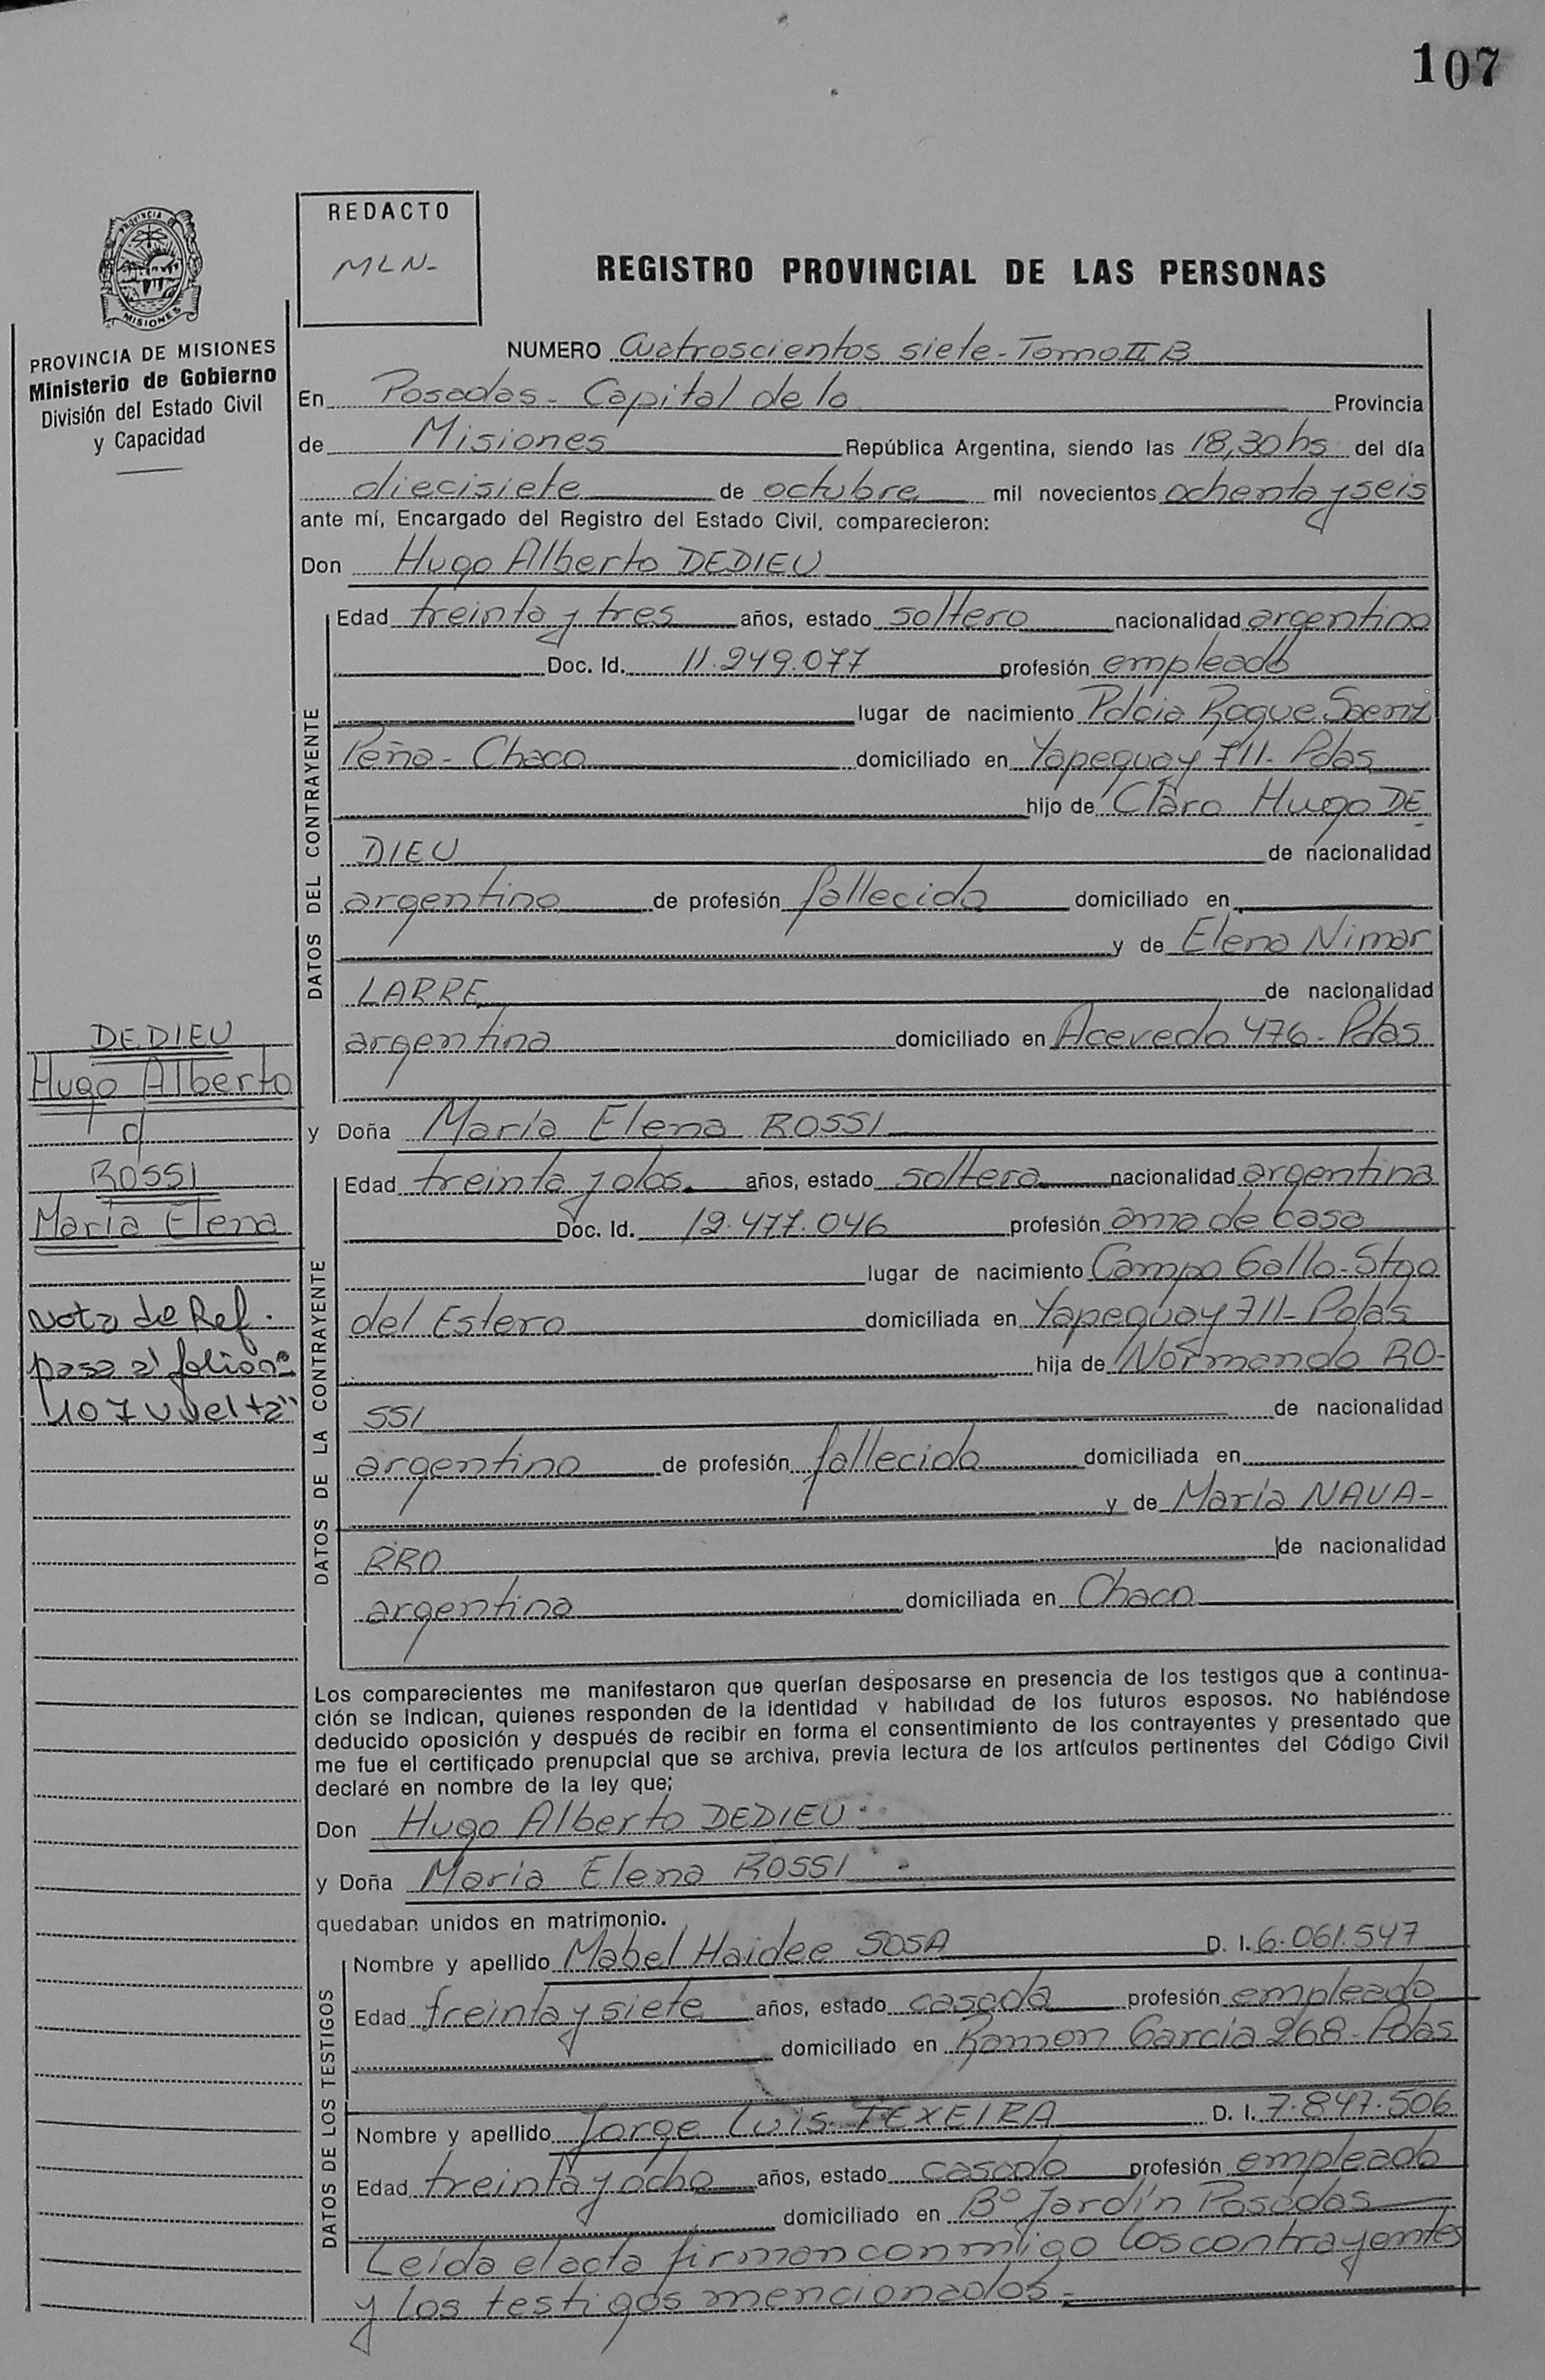 107
REDACTO
MLN-
PROVINCIA DE
MISIONES
REGISTRO PROVINCIAL DE LAS PERSONAS
PROVINCIA DE MISIONES
Ministerio de Gobierno
División del Estado Civil
y Capacidad
NUMERO Cuatroscientos siete - Tomo II B
En Posadas - Capital de la Provincia
de Misiones República Argentina, siendo las 18,30 hs del día
diecisiete de octubre mil novecientos ochenta y seis
ante mí, Encargado del Registro del Estado Civil, comparecieron:
Don Hugo Alberto DEDIEU
DATOS DEL CONTRAYENTE
Edad treinta y tres años, estado soltero nacionalidad argentino
Doc. Id. 11.249.077 profesión empleado
lugar de nacimiento Pdcia Roque Saenz
Peña - Chaco domiciliado en Yapeguay 711 - Pdas
hijo de Claro Hugo DE
DIEU de nacionalidad
argentino de profesión fallecido domiciliado en
y de Elena Nimar
LARRE de nacionalidad
argentina domiciliado en Acevedo 476 - Pdas
DEDIEU
Hugo Alberto
c/
ROSSI
María Elena
Nota de Ref.
pasa a folio nº
107 vuelta"
y Doña María Elena ROSSI
DATOS DE LA CONTRAYENTE
Edad treinta y dos años, estado soltera nacionalidad argentina
Doc. Id. 12.477.046 profesión ama de casa
lugar de nacimiento Campo Gallo - Stgo
del Estero domiciliada en Yapeguay 711 - Pdas
hija de Normando RO-
SSI de nacionalidad
argentino de profesión fallecido domiciliada en
y de María NAVA-
RRO de nacionalidad
argentina domiciliada en Chaco
Los comparecientes me manifestaron que querían desposarse en presencia de los testigos que a continua-
ción se indican, quienes responden de la identidad y habilidad de los futuros esposos. No habiéndose
deducido oposición y después de recibir en forma el consentimiento de los contrayentes y presentado que
me fue el certificado prenupcial que se archiva, previa lectura de los artículos pertinentes del Código Civil
declaré en nombre de la ley que;
Don Hugo Alberto DEDIEU
y Doña María Elena ROSSI
quedaban unidos en matrimonio.
DATOS DE LOS TESTIGOS
Nombre y apellido Mabel Haidee SOSA D. I. 6.061.547
Edad treinta y siete años, estado casada profesión empleado
domiciliado en Ramon Garcia 268 - Pdas
Nombre y apellido Jorge Luis TEXEIRA D. I. 7.847.506
Edad treinta y ocho años, estado casado profesión empleado
domiciliado en Bº Jardín Posadas
Leída el acta firman conmigo los contrayentes
y los testigos mencionados.-